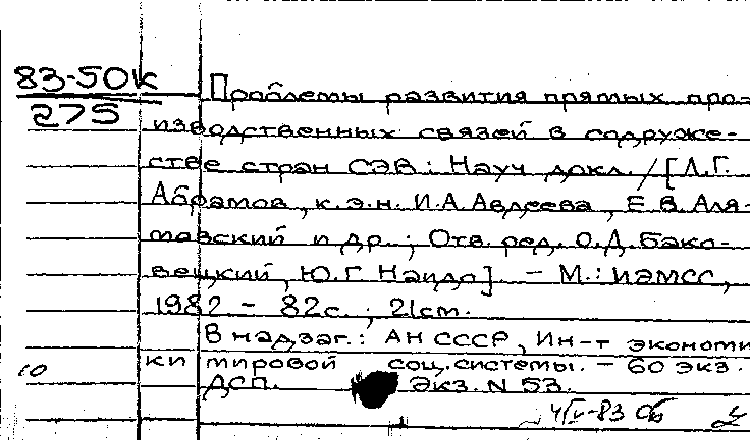 83-50к
275
Проблемы развития прямых про-
изводственных связей в содруже-
стве стран СЭВ: Науч докл. / [Л.Г.
Абрамов, к.э.н. И.А. Авдеева, Е.В. Аля-
мовский и др.; Отв. ред. О.Д. Бако-
вецкий, Ю.Г. Наидо]. - М.: ИЭМСС,
1982 - 82с.; 21см.
В надзаг.: АН СССР, Ин-т экономи
ки мировой соц. системы. - 60 экз.
10
ДСП. Экз. N 53.